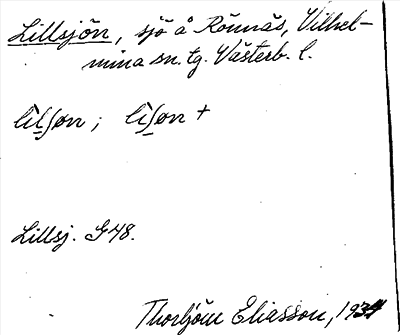 Lillsjön, sjö å Rönnäs, Vilhel-
mina sn. tg. Västerb. l.
lìlʃøn; lìʃøn +
Lillsj. G48.
Thorbjörn Eliasson, 1934